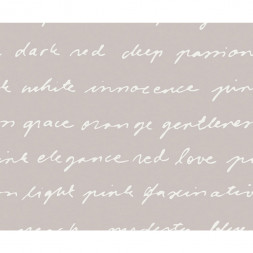 dark red deep passion
k white innocence pin
n grace orange gentlenes
ink elegance red love p
n light pink fascinati
modesty blue